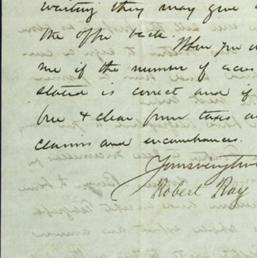 waiting they may give
the offer back. When you
me if the number of acres
stated is correct and if
free & clear from taxes
claims and encumbrances.
Yours very truly
Robert Ray